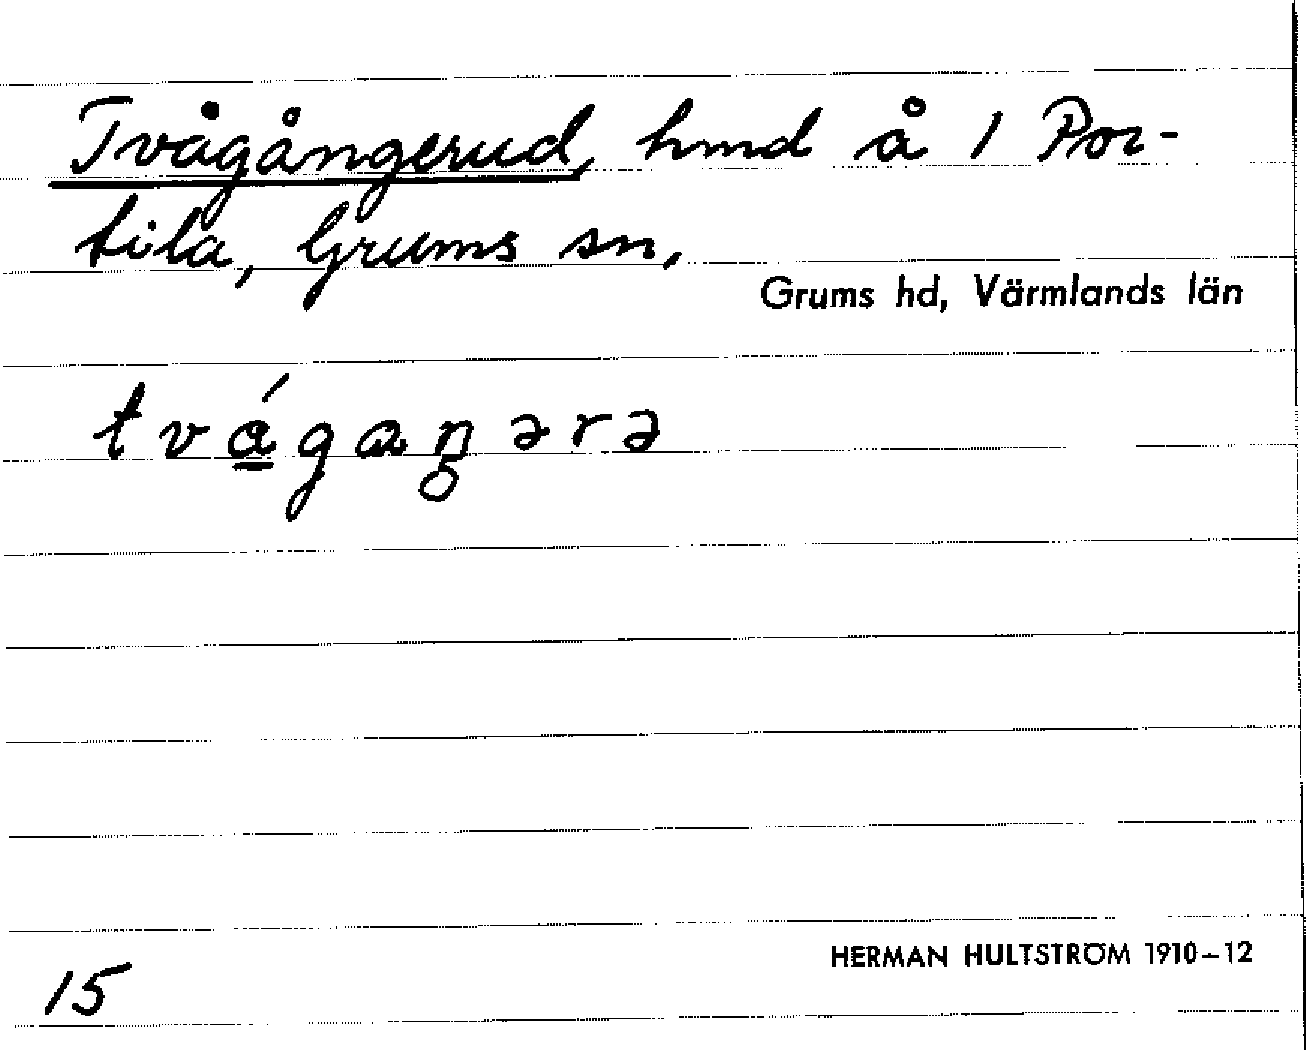 Tvågångerud, hmd å 1 Por-
tila, Grums sn,
Grums hd, Värmlands län
tvágaŋərə
HERMAN HULTSTRÖM 1910–12
15